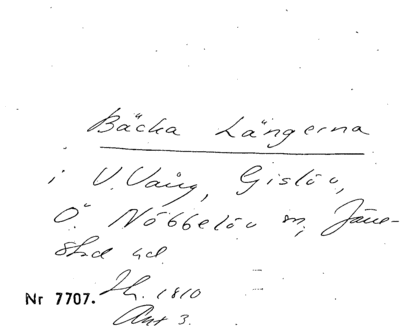 Bäcka Längerna
i V. Vång, Gislöv,
Ö. Nöbbelöv m, Järe-
stad hd
Nr 7707. Jh. 1810
Akt 3.